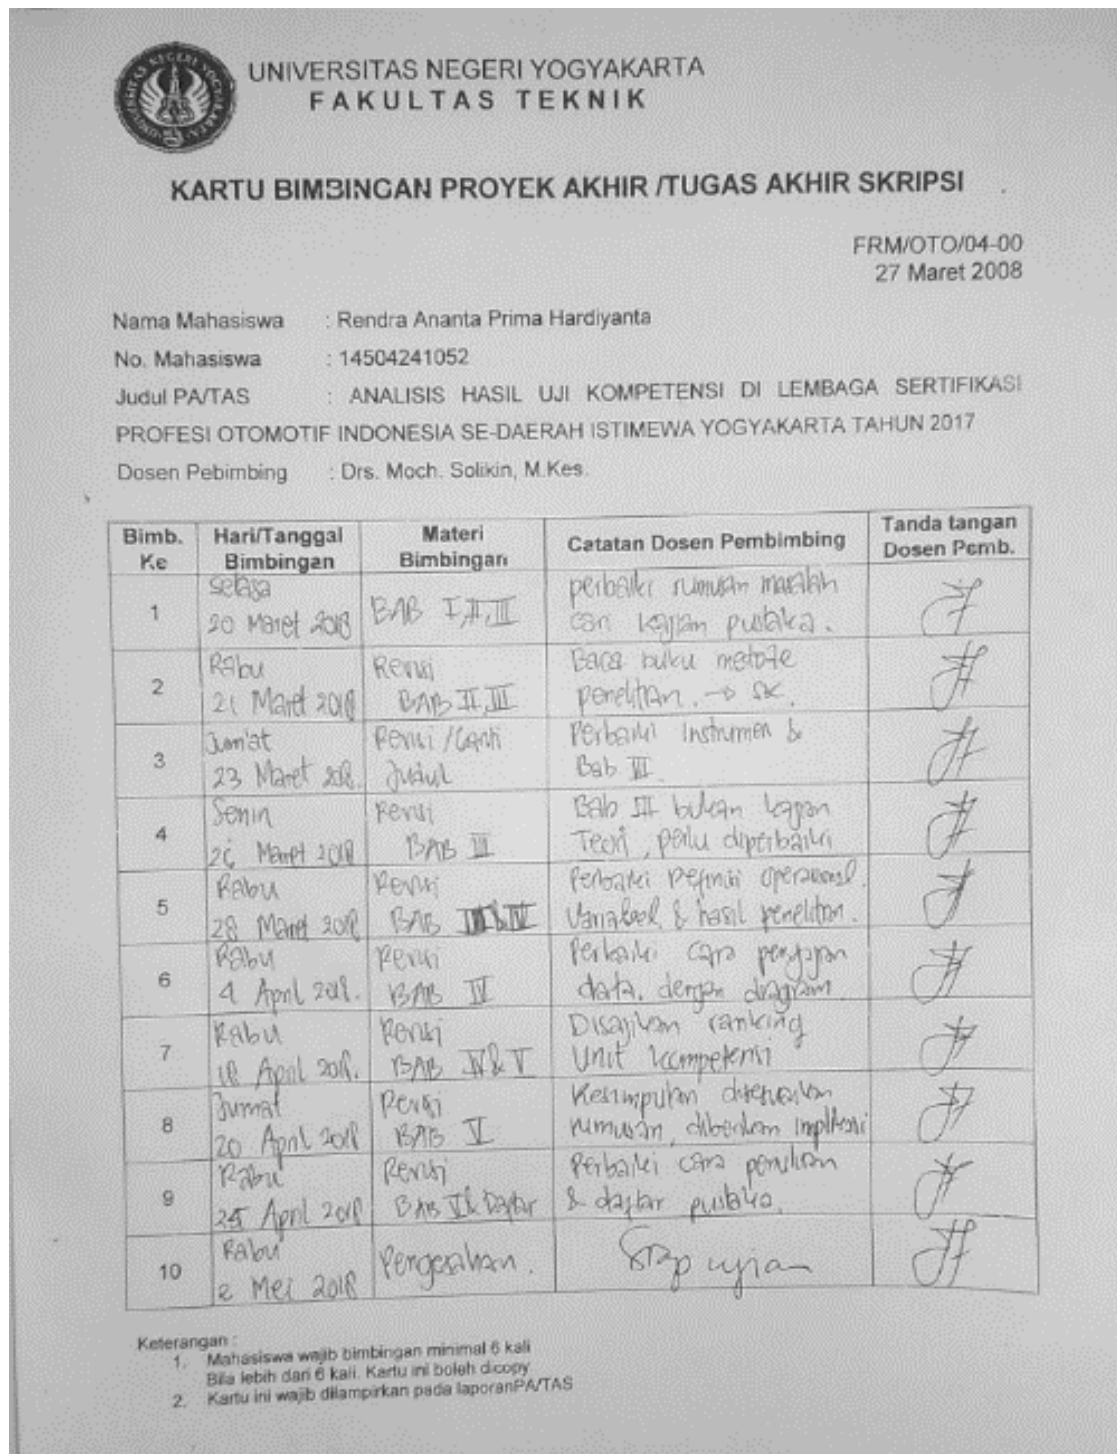 UNIVERSITAS NEGERI YOGYAKARTA
FAKULTAS TEKNIK
KARTU BIMBINGAN PROYEK AKHIR /TUGAS AKHIR SKRIPSI
FRM/OTO/04-00
27 Maret 2008
Nama Mahasiswa : Rendra Ananta Prima Hardiyanta
No. Mahasiswa : 14504241052
Judul PA/TAS : ANALISIS HASIL UJI KOMPETENSI DI LEMBAGA SERTIFIKASI
PROFESI OTOMOTIF INDONESIA SE-DAERAH ISTIMEWA YOGYAKARTA TAHUN 2017
Dosen Pebimbing : Drs. Moch. Solikin, M.Kes.
Bimb. Ke Hari/Tanggal Bimbingan Materi Bimbingan Catatan Dosen Pembimbing Tanda tangan Dosen Pemb.
1 Selasa 20 Maret 2018 BAB I,II,III perbaiki rumusan masalah cari kajian pustaka.
2 Rabu 21 Maret 2018 Revisi BAB II,III Baca buku metode penelitian.
3 Jum'at 23 Maret 2018. Revisi /Ganti Judul Perbaiki Instrumen & Bab III
4 Senin 26 Maret 2018 Revisi BAB III Bab III bukan kajian Teori, perlu diperbaiki
5 Rabu 28 Maret 2018 Revisi BAB Perbaiki Definisi operasional Variabel & hasil penelitian.
6 Rabu 4 April 2018. Revisi BAB IV Perbaiki cara penyajian data, dengan diagram
7 Rabu 18 April 2018. Revisi BAB IV & V Disajikan ranking Unit kompetensi
8 Jumat 20 April 2018 Revisi BAB V Kesimpulan disesuaikan rumusan, diberikan implikasi
9 Rabu 25 April 2018 Revisi BAB V & Daftar Perbaiki cara penulisan & daftar pustaka.
10 Rabu 2 Mei 2018 Pengesahan. Siap ujian
Keterangan :
1. Mahasiswa wajib bimbingan minimal 6 kali
Bila lebih dari 6 kali. Kartu ini boleh dicopy
2. Kartu ini wajib dilampirkan pada laporanPA/TAS